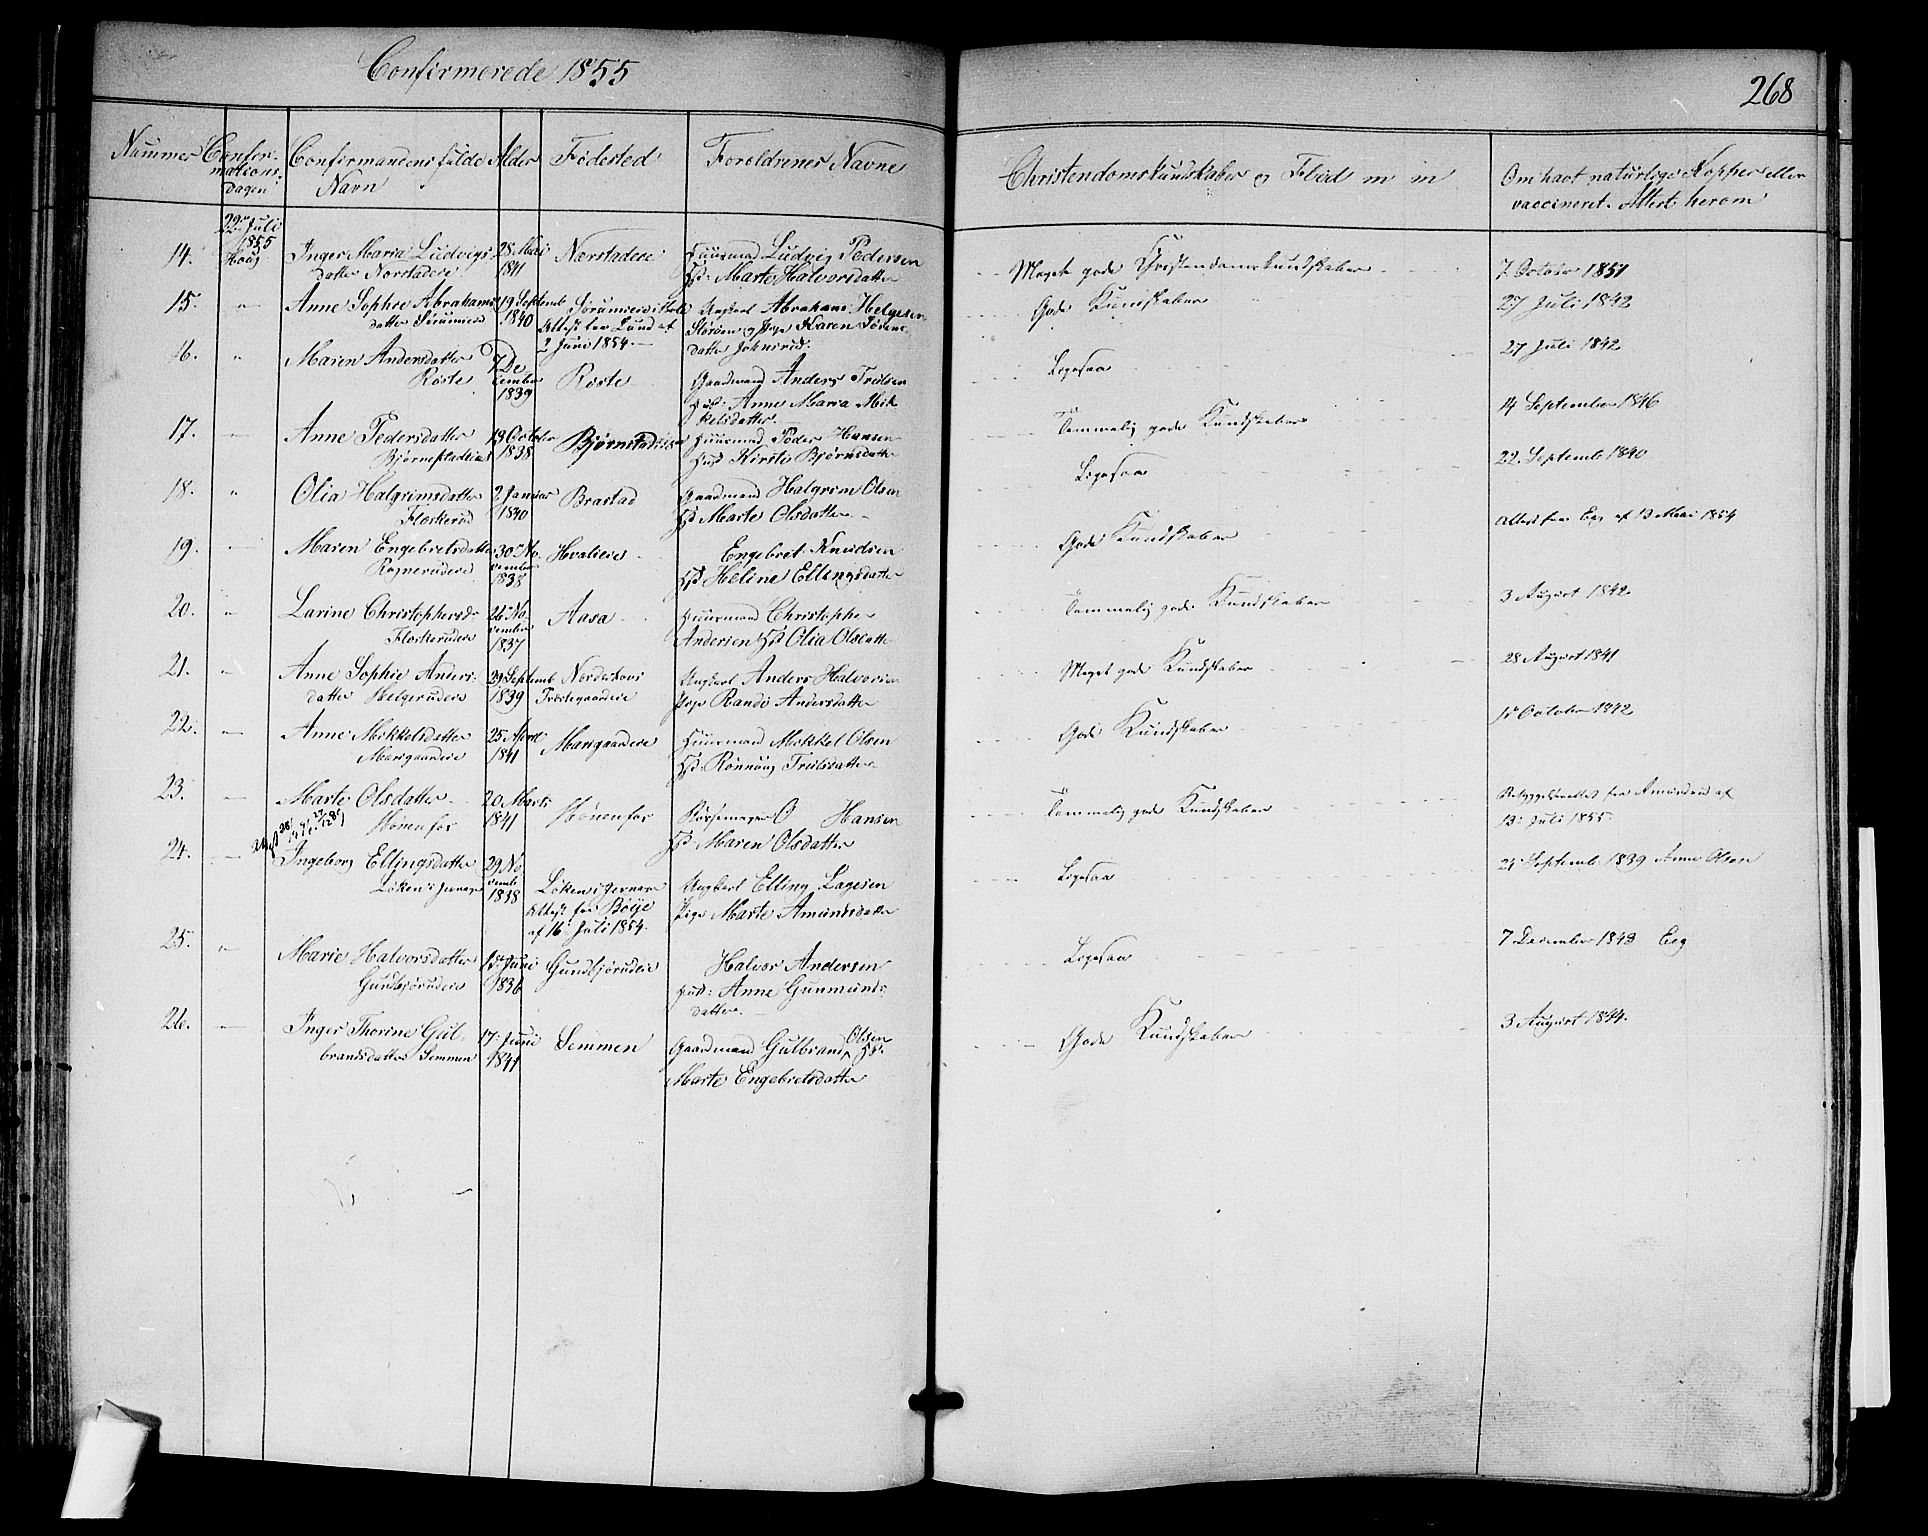 Confirmerede 1855
268
Nummer
Confir-
mations-
Dagen
Confirmandens fulde
Navn
Alder
Fødested
Forældrenes Navne
Christendomskundskaber og Flid m m
Om havt naturlige Kopper eller
vaccineret. Attest herom
22de Juli
1855
Houg
14.
Inger Maria Ludvigs
datter Nærstadeie
28 Mai
1841
Nærstadeie
Huusmand Ludvig Pedersen
Hst: Marte Halvorsdatter
Meget gode Christendomskundskaber
7 October 1851
15.
Anne Sophie Abrahams
datter Sørumeie
19 Septemb
1840
Attest fra Lund af
2 Juni 1854.
Ungkarl Abraham Helgesen
Pige Karen
datter
Gode Kundskaber
27 Juli 1842
16.
Maren Andersdatter
Røste
7 De
cember
1839
Røste
Gaardmand Anders Trulsen
Hst: Anne Maria Mik
kelsdatter.
Ligesaa
27 Juli 1842
17.
Anne Pedersdatter
19 October
1838
Huusmand Peder Hansen
Hust Kirsti Bjørnsdatte
Temmelig gode Kundskaber
14 September 1846
18.
Olia Halgrimsdatter
Flaskerud
2 Januar
1840
Brastad
Gaardmand Halgrim Olsen
Hst Marte Olsdatter
Ligesaa
22. Septemb 1840
19.
Maren Engebretsdatter
Rognerudeie
30 No-
vember
1838
Hvalseie
Engebret Knudsen
Hst Heline Ellingsdatter
Gode Kundskaber
Attest fra Eeg af 13 Mai 1854
20.
Larine Christophersd-
Flaskerudeie
26 No-
vember
1837
Aasa
Huusmand Christopher
Andersen Hst Olia Olsdatte
Temmelig gode Kundskaber
3 August 1842
21.
Anne Sophie Anders-
datter Helgerudeie
29 Septemb
1839
Norderhovs
Præstegaardeie
Ungkarl Anders Halvorsen
Pige Randi Andersdatter
Meget gode Kundskaber
28 August 1841
22.
Anne Mikkelsdatter
Marigaardeie
25 April
1841
Marigaardeie
Huusmand Mikkel Olsen
Hst: Rønnaug Trulsdatter
Gode Kundskaber
October 1842
23.
Marte Olsdatter
Hønenfos
20 Marts
1841
Hønenfos
Børsemager O Hansen
Hst Maren Olsdatter
Temmelig gode Kundskaber
13 Juli 1855
24.
Ingeborg Ellingsdatter
Løken i Jevnager
29 No
vemb
1838
Løken i Jevnager
Attest fra Bøije
af 16 Juli 1854.
Ungkarl Elling Lagesen
Pige Marte Amundsdatter
Ligesaa
24 Septemb 1839 Anne Olsen
25.
Marie Halvorsdatter
Gundbjørudeie
15 Juni
1836
Gundbjørudeie
Halvor Andersen
Hust: Anne Gunmunds
datter
Ligesaa
7 December 1843 Eeg
26.
Inger Thorine Gul-
brandsdatter Semmen
17 Juni
1841
Semmen
Gaardmand Gulbrand Olsen Hst.
Marte Engebretsdatter
Gode Kundskaber
3 August 1844.